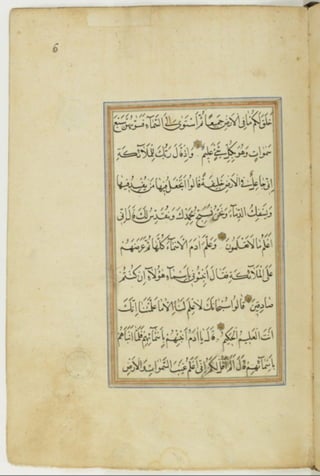 6
خَلَقَ لَكُمْ مَا فِي الْاَرْضِ جَمِيعًا ثُمَّ اسْتَوٰى اِلَى السَّمَآءِ فَسَوّٰيهُنَّ سَبْعَ
سَمٰوَاتٍ وَهُوَ بِكُلِّ شَيْءٍ عَلِيمٌ وَاِذْ قَالَ رَبُّكَ لِلْمَلٰٓئِكَةِ
اِنِّي جَاعِلٌ فِي الْاَرْضِ خَلِيفَةً قَالُوا اَتَجْعَلُ فِيهَا مَنْ يُفْسِدُ فِيهَا
وَيَسْفِكُ الدِّمَآءَ وَنَحْنُ نُسَبِّحُ بِحَمْدِكَ وَنُقَدِّسُ لَكَ قَالَ اِنِّي
اَعْلَمُ مَا لَا تَعْلَمُونَ وَعَلَّمَ اٰدَمَ الْاَسْمَآءَ كُلَّهَا ثُمَّ عَرَضَهُمْ
عَلَى الْمَلٰٓئِكَةِ فَقَالَ اَنْبِئُونِي بِاَسْمَآءِ هٰٓؤُلَآءِ اِنْ كُنْتُمْ
صَادِقِينَ قَالُوا سُبْحَانَكَ لَا عِلْمَ لَنَا اِلَّا مَا عَلَّمْتَنَا اِنَّكَ
اَنْتَ الْعَلِيمُ الْحَكِيمُ قَالَ يَا اٰدَمُ اَنْبِئْهُمْ بِاَسْمَآئِهِمْ فَلَمَّا اَنْبَاَهُمْ
بِاَسْمَآئِهِمْ قَالَ اَلَمْ اَقُلْ لَكُمْ اِنِّي اَعْلَمُ غَيْبَ السَّمٰوَاتِ وَالْاَرْضِ